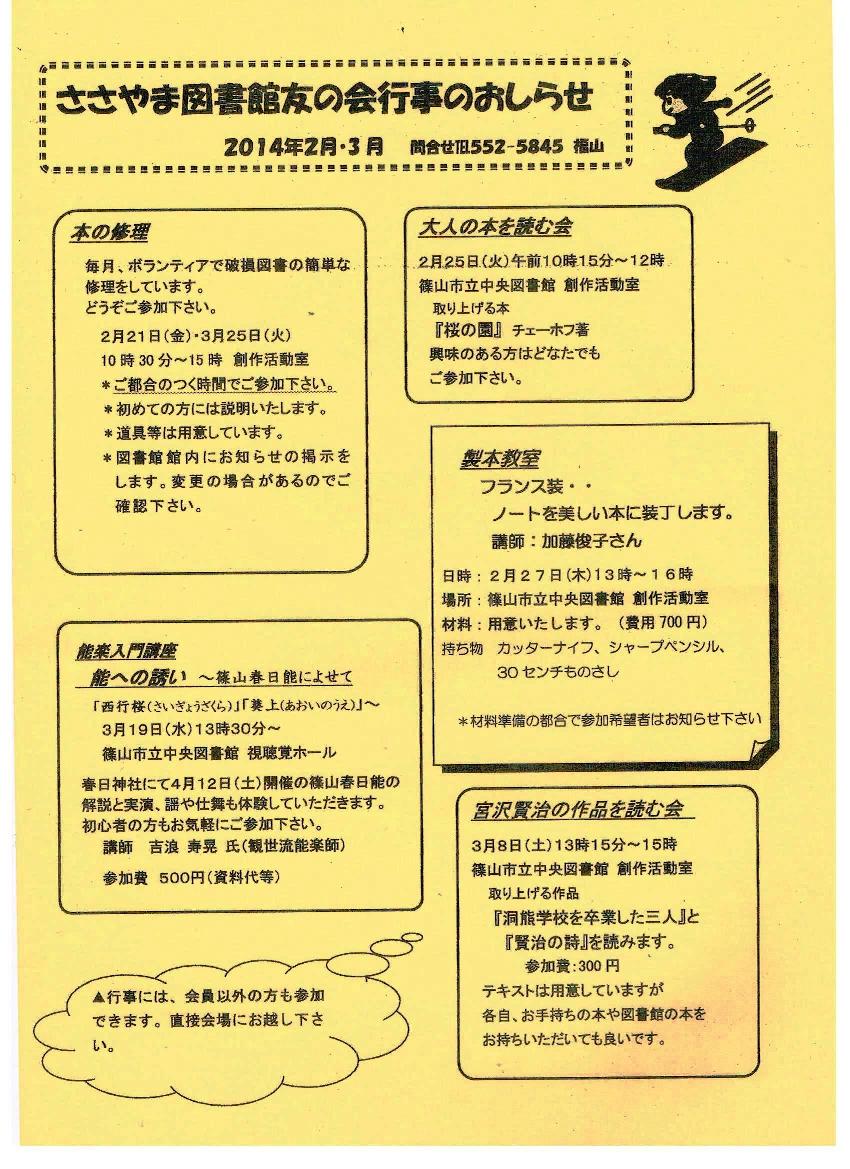 ささやま図書館友の会行事のおしらせ
2014年2月・3月 問合せ℡552-5845 福山
本の修理
毎月、ボランティアで破損図書の簡単な
修理をしています。
どうぞご参加下さい。
2月21日(金)・3月25日(火)
10時30分～15時 創作活動室
＊ご都合のつく時間でご参加下さい。
＊初めての方には説明いたします。
＊道具等は用意しています。
＊図書館館内にお知らせの掲示を
します。変更の場合があるのでご
確認下さい。
大人の本を読む会
2月25日(火)午前10時15分～12時
篠山市立中央図書館 創作活動室
取り上げる本
『桜の園』 チェーホフ著
興味のある方はどなたでも
ご参加下さい。
製本教室
フランス装・・
ノートを美しい本に装丁します。
講師：加藤俊子さん
日時：２月２７日(木)13時～１６時
場所：篠山市立中央図書館 創作活動室
材料：用意いたします。（費用700円）
持ち物 カッターナイフ、シャープペンシル、
30センチものさし
＊材料準備の都合で参加希望者はお知らせ下さい
能楽入門講座
能への誘い ～篠山春日能によせて
「西行桜(さいぎょうざくら)」「葵上(あおいのうえ)」～
3月19日(水)13時30分～
篠山市立中央図書館 視聴覚ホール
春日神社にて4月12日(土)開催の篠山春日能の
解説と実演、謡や仕舞も体験していただきます。
初心者の方もお気軽にご参加下さい。
講師 吉浪 寿晃 氏(観世流能楽師)
参加費 500円(資料代等)
宮沢賢治の作品を読む会
3月8日(土)13時15分～15時
篠山市立中央図書館 創作活動室
取り上げる作品
『洞熊学校を卒業した三人』と
『賢治の詩』を読みます。
参加費：300円
テキストは用意していますが
各自、お手持ちの本や図書館の本を
お持ちいただいても良いです。
▲行事には、会員以外の方も参加
できます。直接会場にお越し下さ
い。